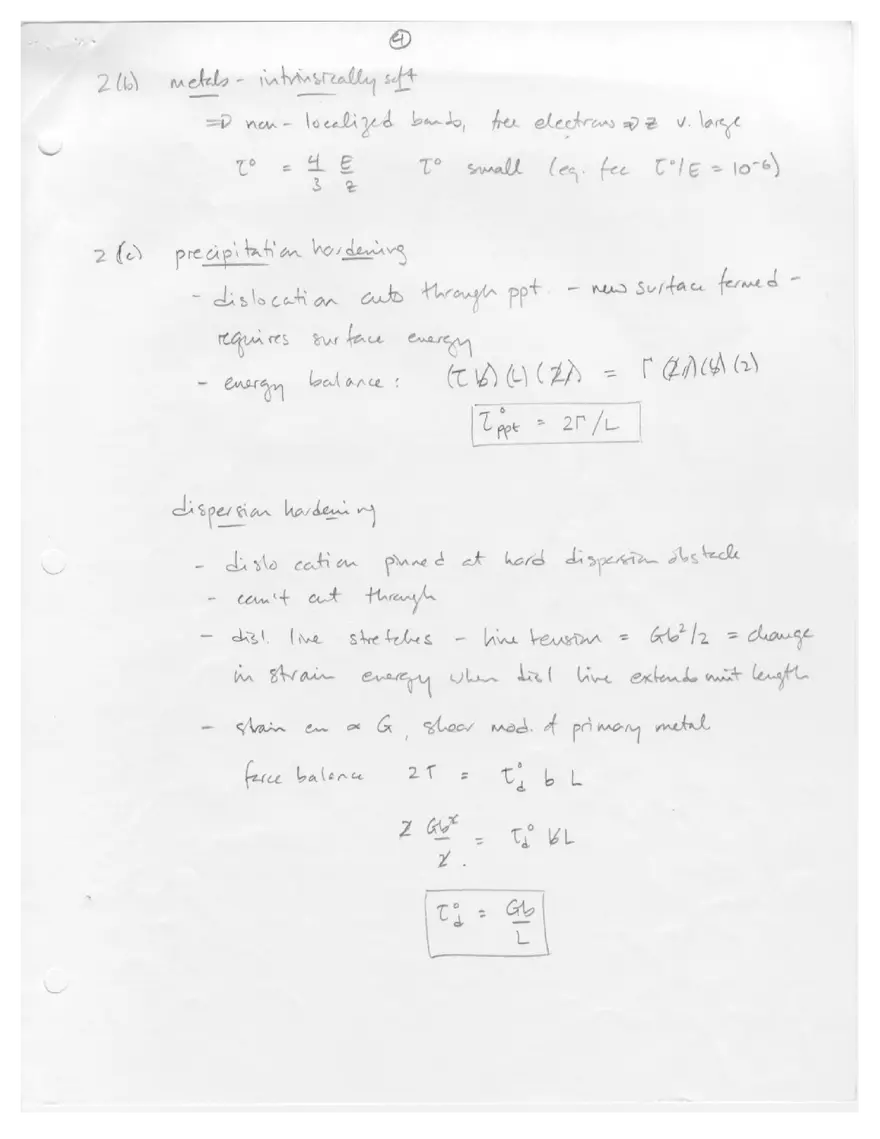 4
2(b) metals - intrinsically soft
⇒ non-localized bands, free electrons ⇒ z v. large
τ° = 4/3 E/z τ° small (eg. fcc τ°/E = 10⁻⁶)
2(c) precipitation hardening
- dislocation cuts through ppt. - new surface formed -
requires surface energy
- energy balance: (τ b)(L)(2r) = Γ (2r)(b)(2)
τ°ppt = 2Γ/L
dispersion hardening
- dislocation pinned at hard dispersion obstacle
- can't cut through
- disl. line stretches - line tension = Gb²/2 = change
in strain energy when disl line extends unit length
- strain en ∝ G, shear mod. of primary metal
force balance 2T = τ°d b L
2 Gb²/2 = τ°d bL
τ°d = Gb/L